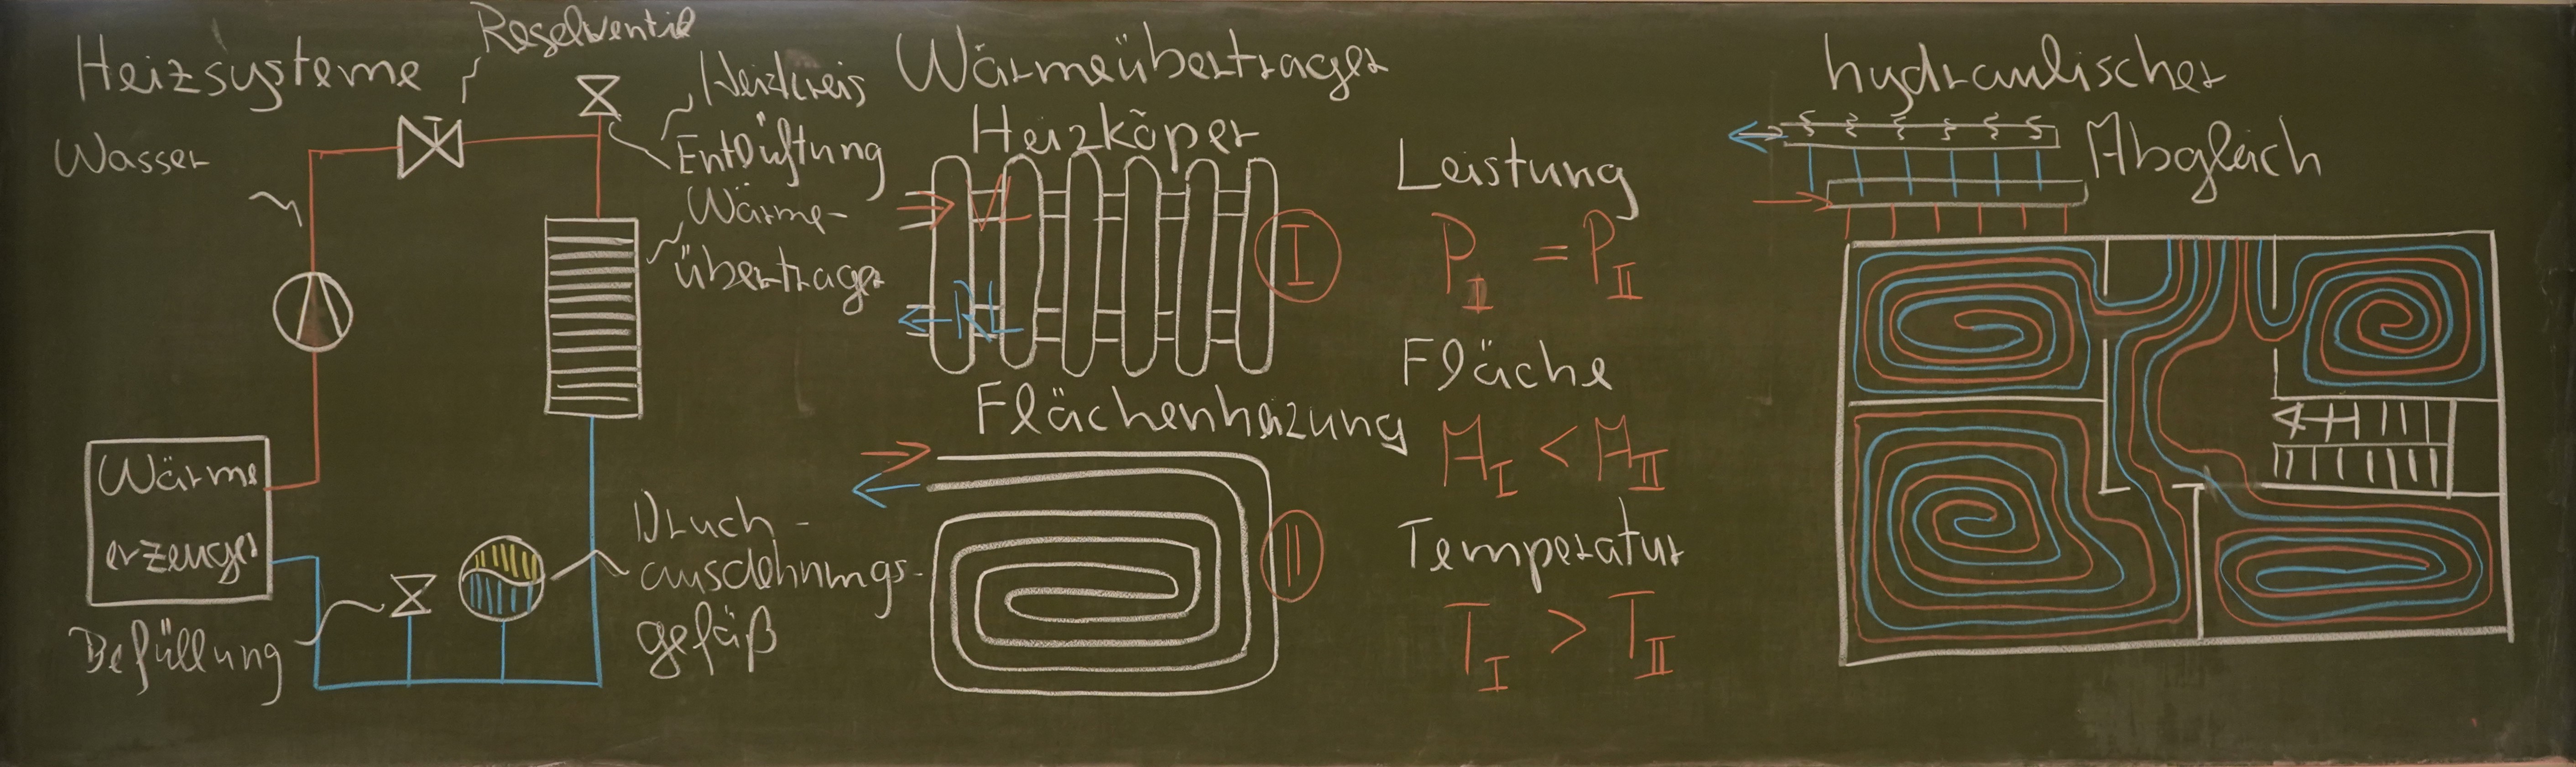 Heizsysteme
Wasser
Regelventil
Heizkreis
Entlüftung
Wärme-
übertrager
Wärme
erzeuger
Befüllung
Druck-
ausdehnungs-
gefäß
Wärmeübertrager
Heizköper
VL
RL
I
Flächenheizung
II
Leistung
P_I = P_II
Fläche
A_I < A_II
Temperatur
T_I > T_II
hydraulischer
Abgleich